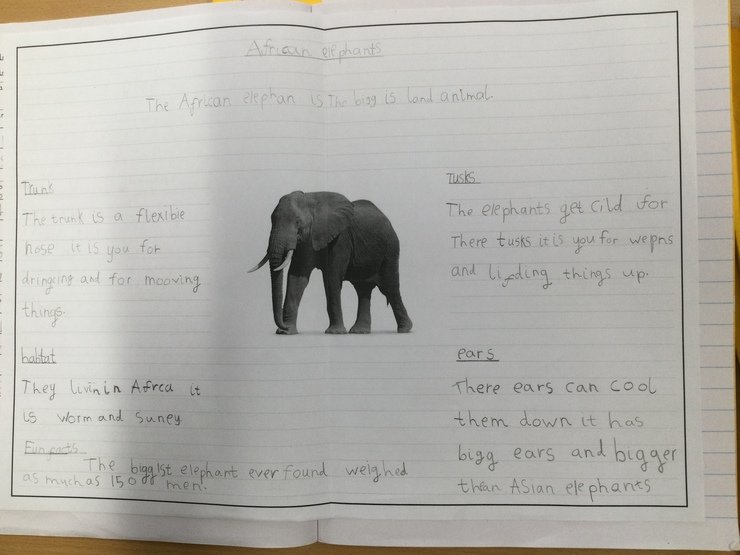 African elephants
The African elephan is The bigg is land animal.
Trunk
The trunk is a flexible
nose it is you for
dringcing and for mooving
things.
habitat
They livin in Afrca it
is worm and suney
Fun facts
The biggist elephant ever found weighed
as much as 150 men.
Tusks
The elephants get cild for
There tusks it is you for wepns
and lifding things up.
ears
There ears can cool
them down it has
bigg ears and bigger
than Asian elephants